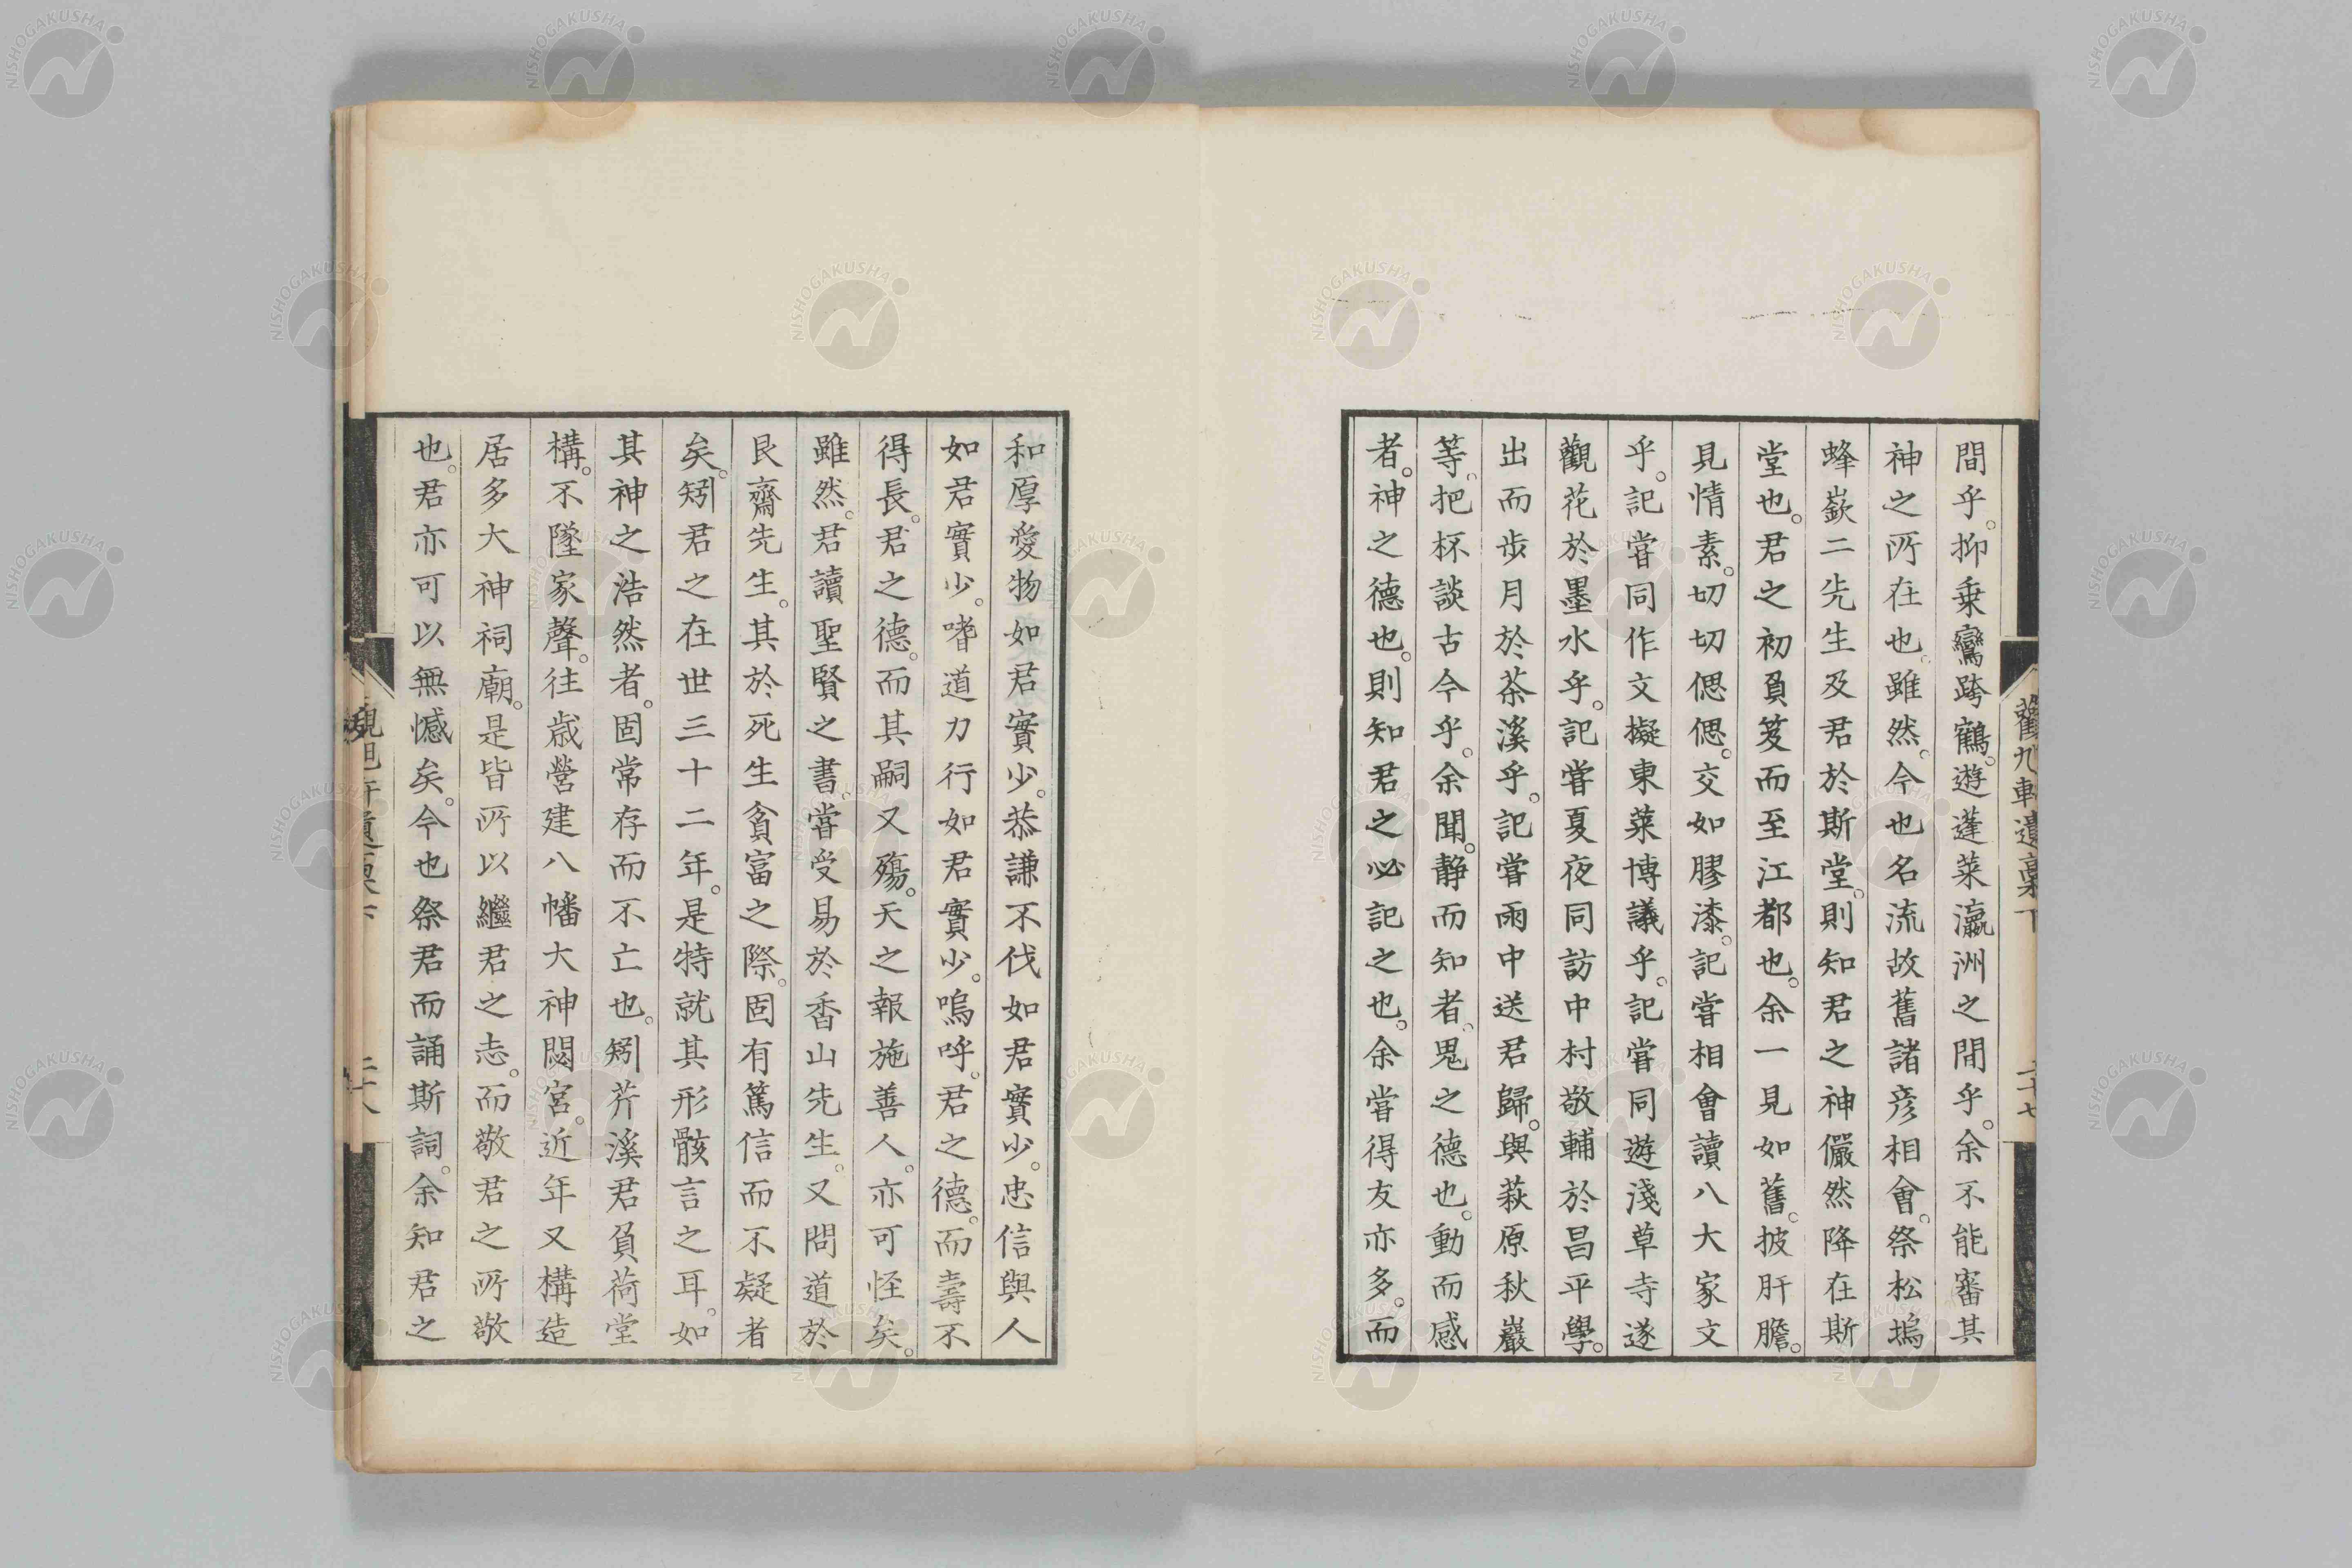 間乎。抑乗鸞跨鶴。遊蓬萊瀛洲之間乎。余不能審其
神之所在也。雖然。今也名流故舊諸彦相會。祭松塢
蜂嶽二先生及君於斯堂。則知君之神儼然降在斯
堂也。君之初負笈而至江都也。余一見如舊。披肝膽。
見情素。切切偲偲。交如膠漆。記嘗相會讀八大家文
乎。記嘗同作文擬東萊博議乎。記嘗同遊淺草寺遂
觀花於墨水乎。記嘗夏夜同訪中村敬輔於昌平學。
出而步月於茶溪乎。記嘗雨中送君歸。與萩原秋巖
等。把杯談古今乎。余聞。静而知者。鬼之德也。動而感
者。神之德也。則知君之必記之也。余嘗得友亦多。而
二十七
和厚愛物如君實少。恭謙不伐如君實少。忠信與人
如君實少。嗜道力行如君實少。嗚呼。君之德。而壽不
得長。君之德。而其嗣又殤。天之報施善人。亦可怪矣。
雖然。君讀聖賢之書。嘗受易於香山先生。又問道於
艮齋先生。其於死生貧富之際。固有篤信而不疑者
矣。矧君之在世三十二年。是特就其形骸言之耳。如
其神之浩然者。固常存而不亡也。矧芥溪君負荷堂
構。不墜家聲。往歳營建八幡大神閟宮。近年又構造
居多大神祠廟。是皆所以繼君之志。而敬君之所敬
也。君亦可以無憾矣。今也祭君而誦斯詞。余知君之
NISHOGAKUSHA